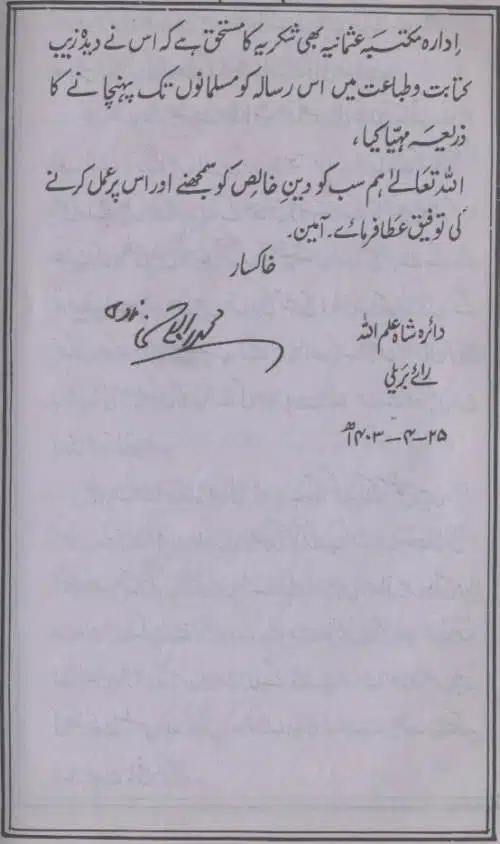 ادارہ مکتبہ عثمانیہ بھی شکریہ کا مستحق ہے کہ اس نے دیدہ زیب
کتابت و طباعت میں اس رسالہ کو مسلمانوں تک پہنچانے کا
ذریعہ مہیّا کیا،
اللہ تعالےٰ ہم سب کو دینِ خالِص کو سمجھنے اور اس پر عمل کرنے
کی توفیق عطا فرمائے۔ آمین۔
خاکسار
دائرہ شاہ علم اللہ
رائے بریلی
۲۵-۴-۱۴۰۳ھ